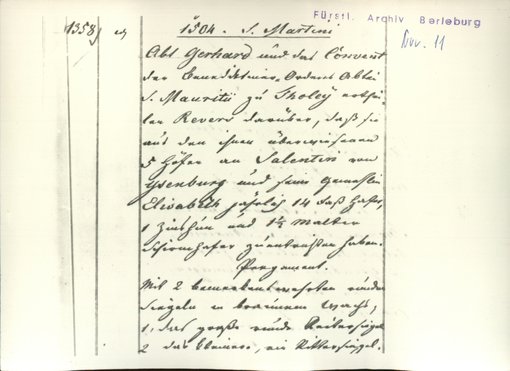 Fürstl. Archiv Berleburg
Nov. 11
1358
1504. S. Martini
Abt Gerhard und das Convent
der Benediktiner-Ordens Abtei
S. Mauritii zu Tholey erthei-
len Revers darüber, daß sie
aus den ihnen überwiesenen
5 Höfen an Salentin von
Ysenburg und seine Gemahlin
Elisabeth jährlich 14 Faß Hafer,
1 und 1½ Malter
zu entrichten haben.
Pergament.
Mit 2 runden
Siegeln in braunem Wachs,
1, das große runde Reitersiegel
2 das kleinere, ein Rittersiegel.